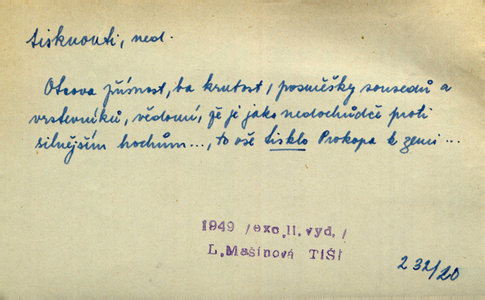 tisknouti, ned.
Otcova přísnost, ba krutost, posměšky sousedů a
vrstevníků, vědomí, že je jako nedochůdče proti
silnějším hochům..., to vše tisklo Prokopa k zemi...
1949 /exc. II. vyd./
L. Mašínová TIŠÍ
232/20